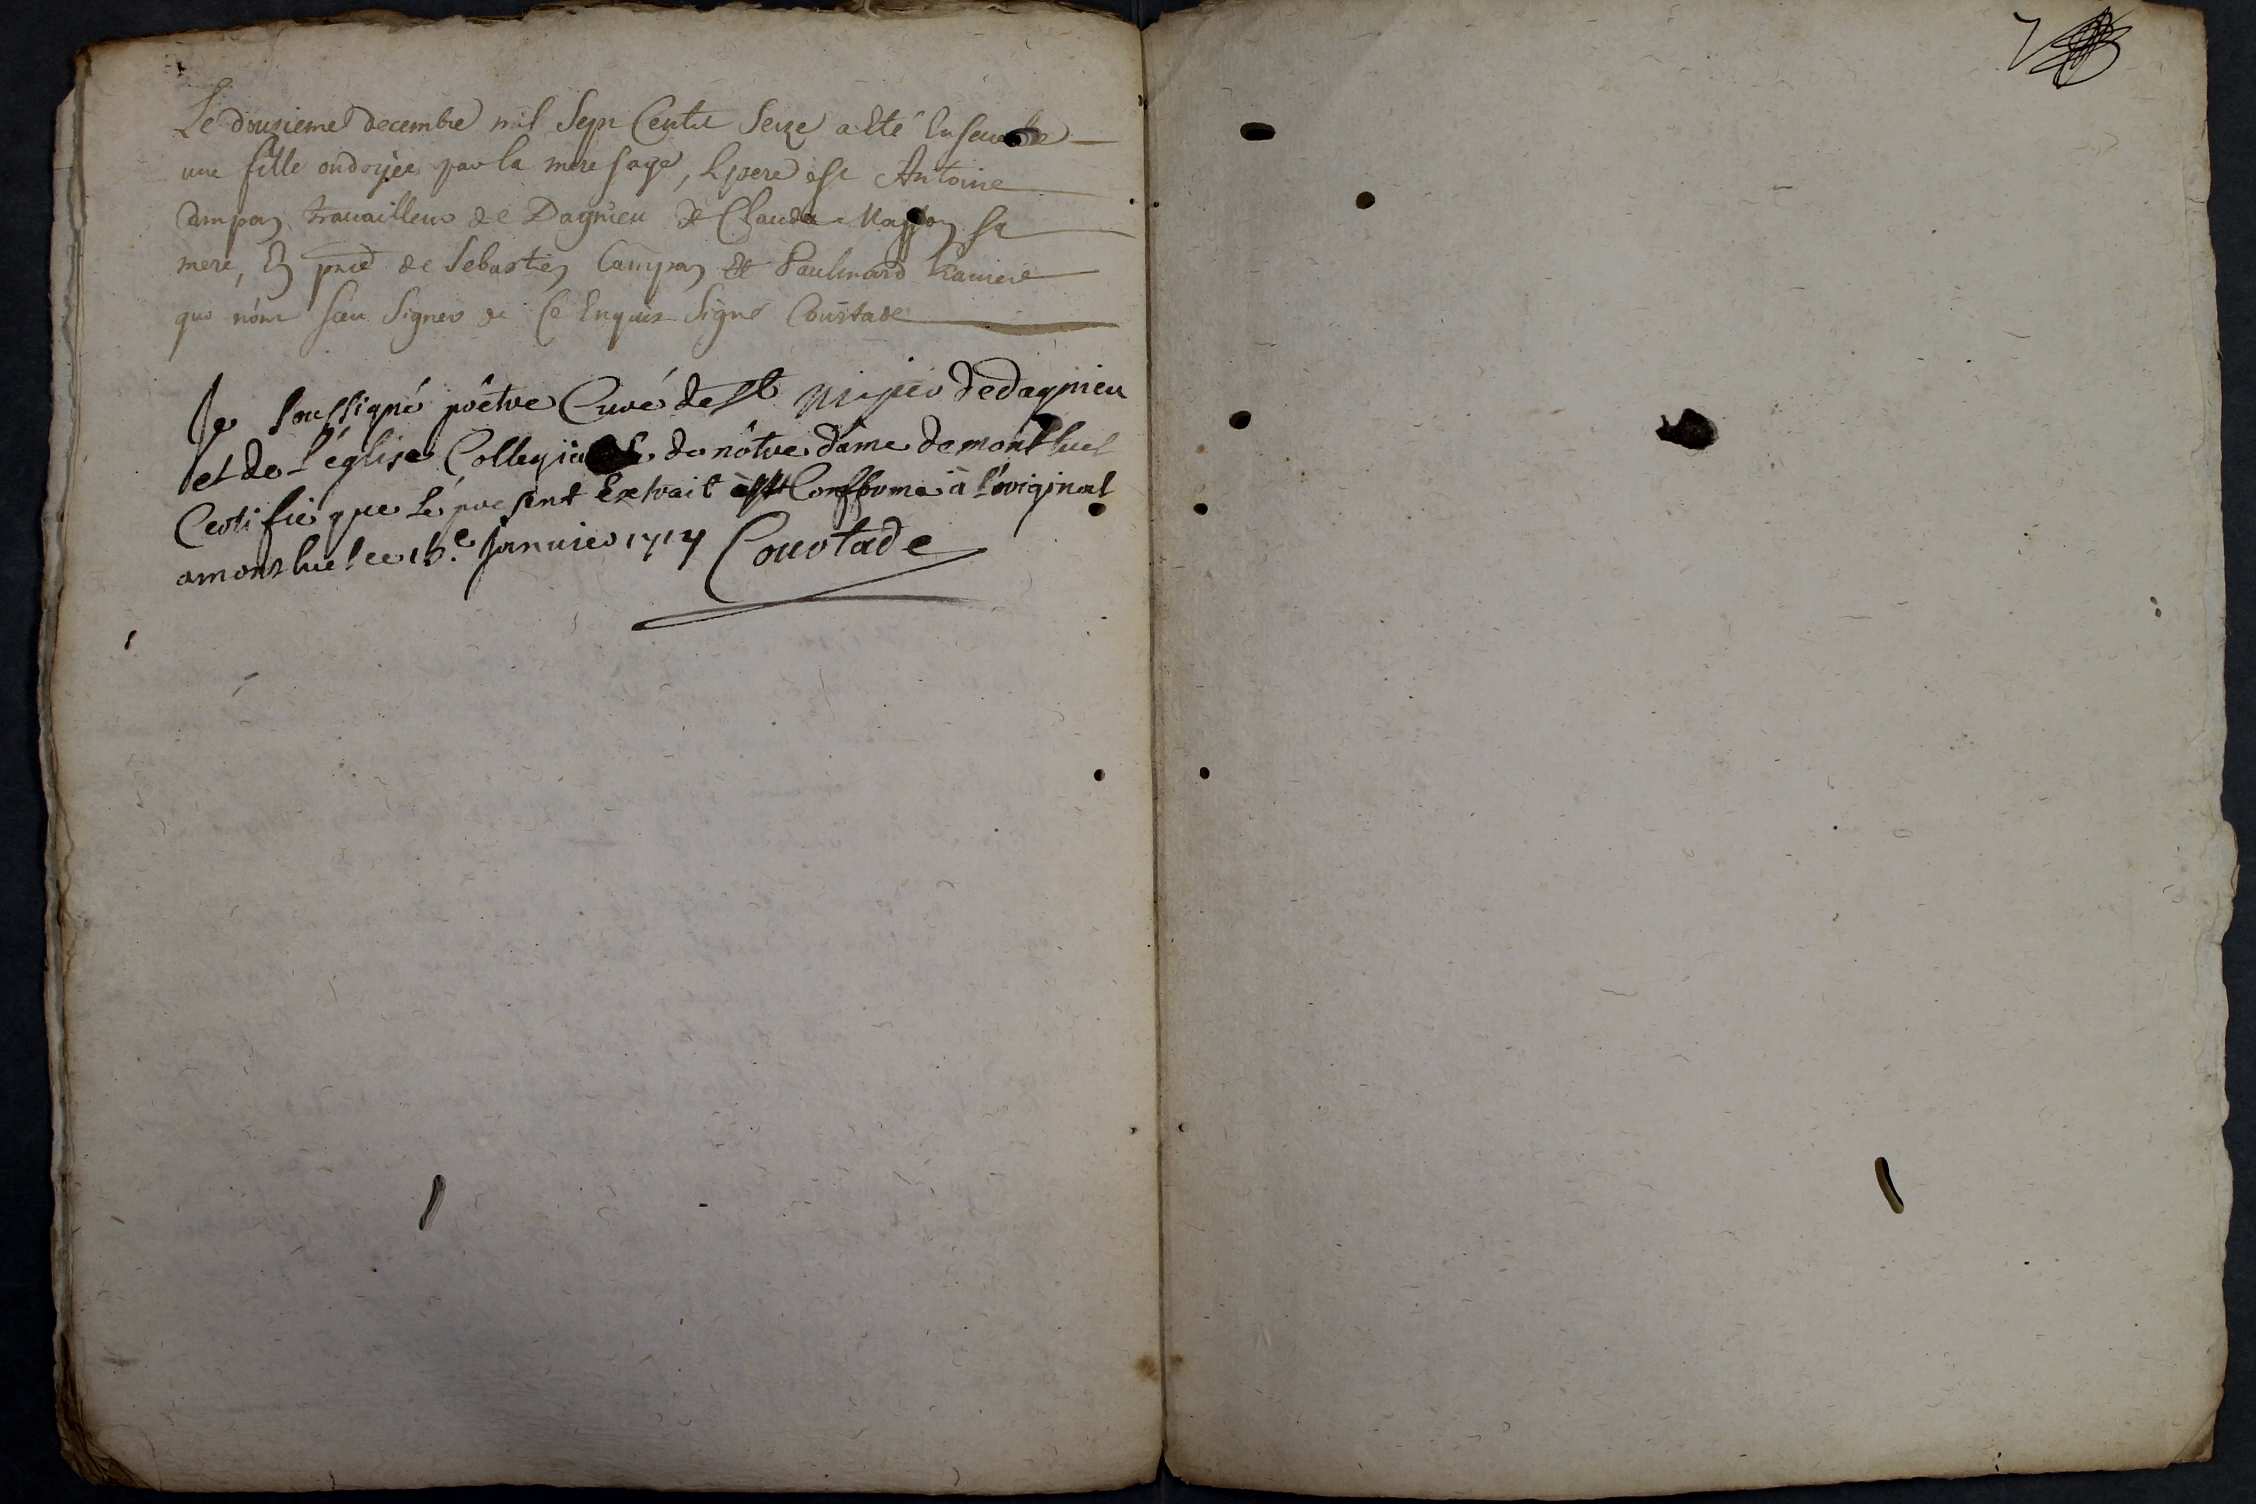 Le douzieme decembre mil Sept Cents Seize a Eté Ensevelie
une fille ondoyée par la mere sage, le pere est Antoine
travailleur de Dagnieu & Clauda sa
mere, En pnce de Sebastien Campan Et
qui n'ont sceu Signer de Ce Enquis Signé Courtade
Je soussigné prêtre Curé de st de dagnieu
et de l'église Collegialle de nôtre dame de montluel
Certifie que le present Extrait est Conforme à l'original
a montluel ce janvier 1717 Courtade
7